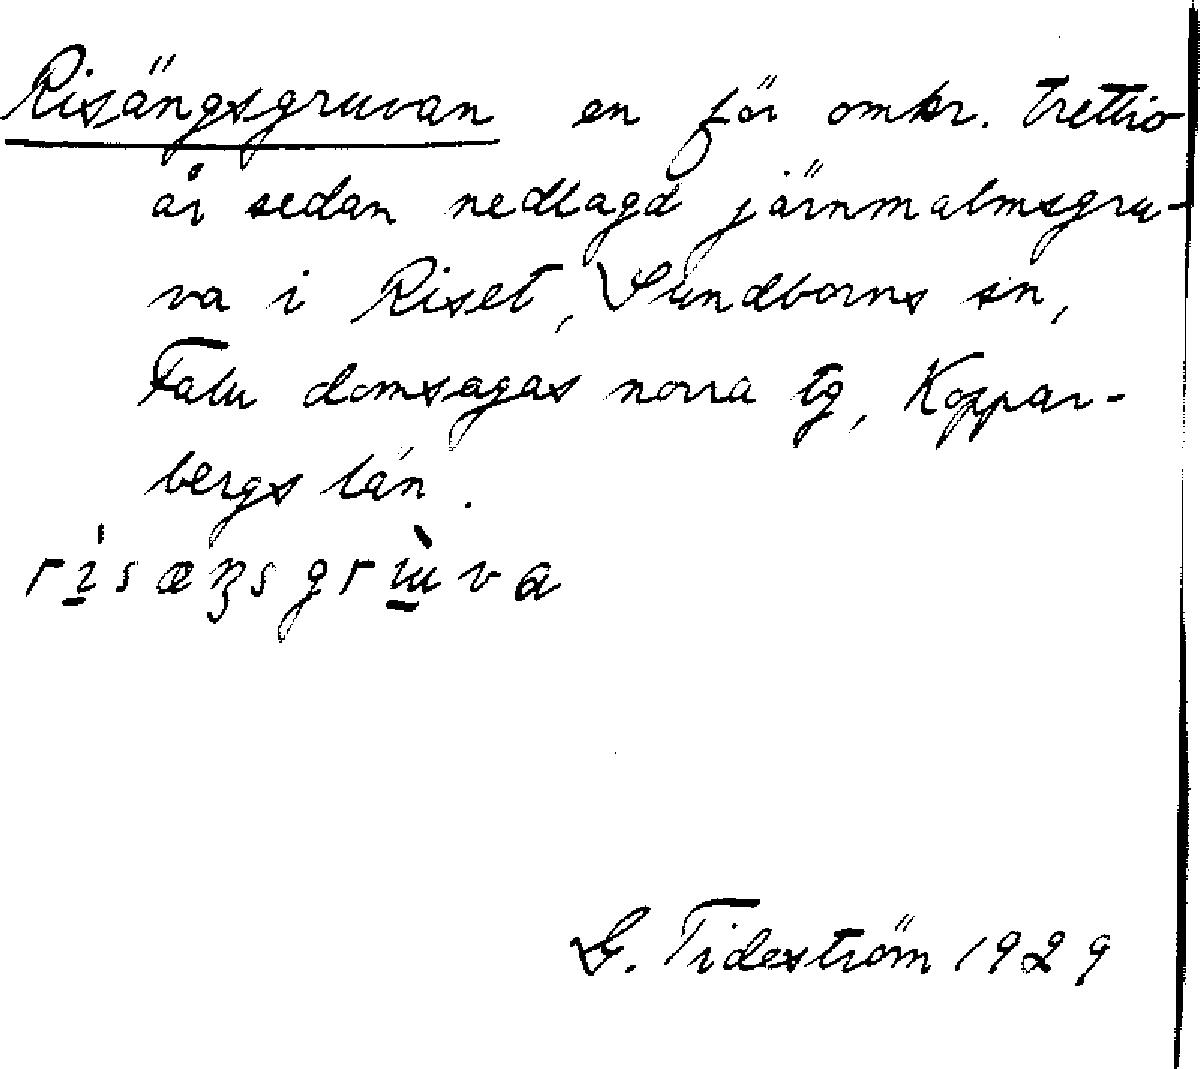 Risängsgruvan en för omkr. trettio
år sedan nedlagd järnmalmsgru-
va i Riset, Sundborns sn,
Falu domsagas norra tg, Koppar-
bergs län.
G. Tideström 1929